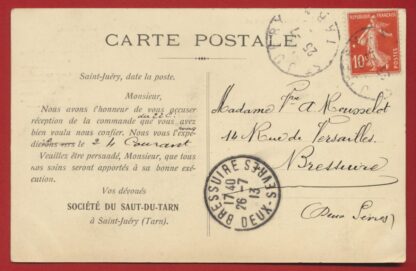 CARTE POSTALE
RÉPUBLIQUE FRANÇAISE
10c
Saint-Juéry, date la poste.
Monsieur,
Nous avons l'honneur de vous accuser
réception de la commande que vous avez
bien voulu nous confier. Nous vous l'expé-
dierons vers le 24 Courant
Veuillez être persuadé, Monsieur, que tous
nos soins seront apportés à sa bonne exé-
cution.
Vos dévoués
SOCIÉTÉ DU SAUT-DU-TARN
à Saint-Juéry (Tarn).
Madame A Rousselot
14 Rue de Versailles.
Bressuire
(Deux Sèvres)
BRESSUIRE
17 40
26-7
13
DEUX-SÈVRES